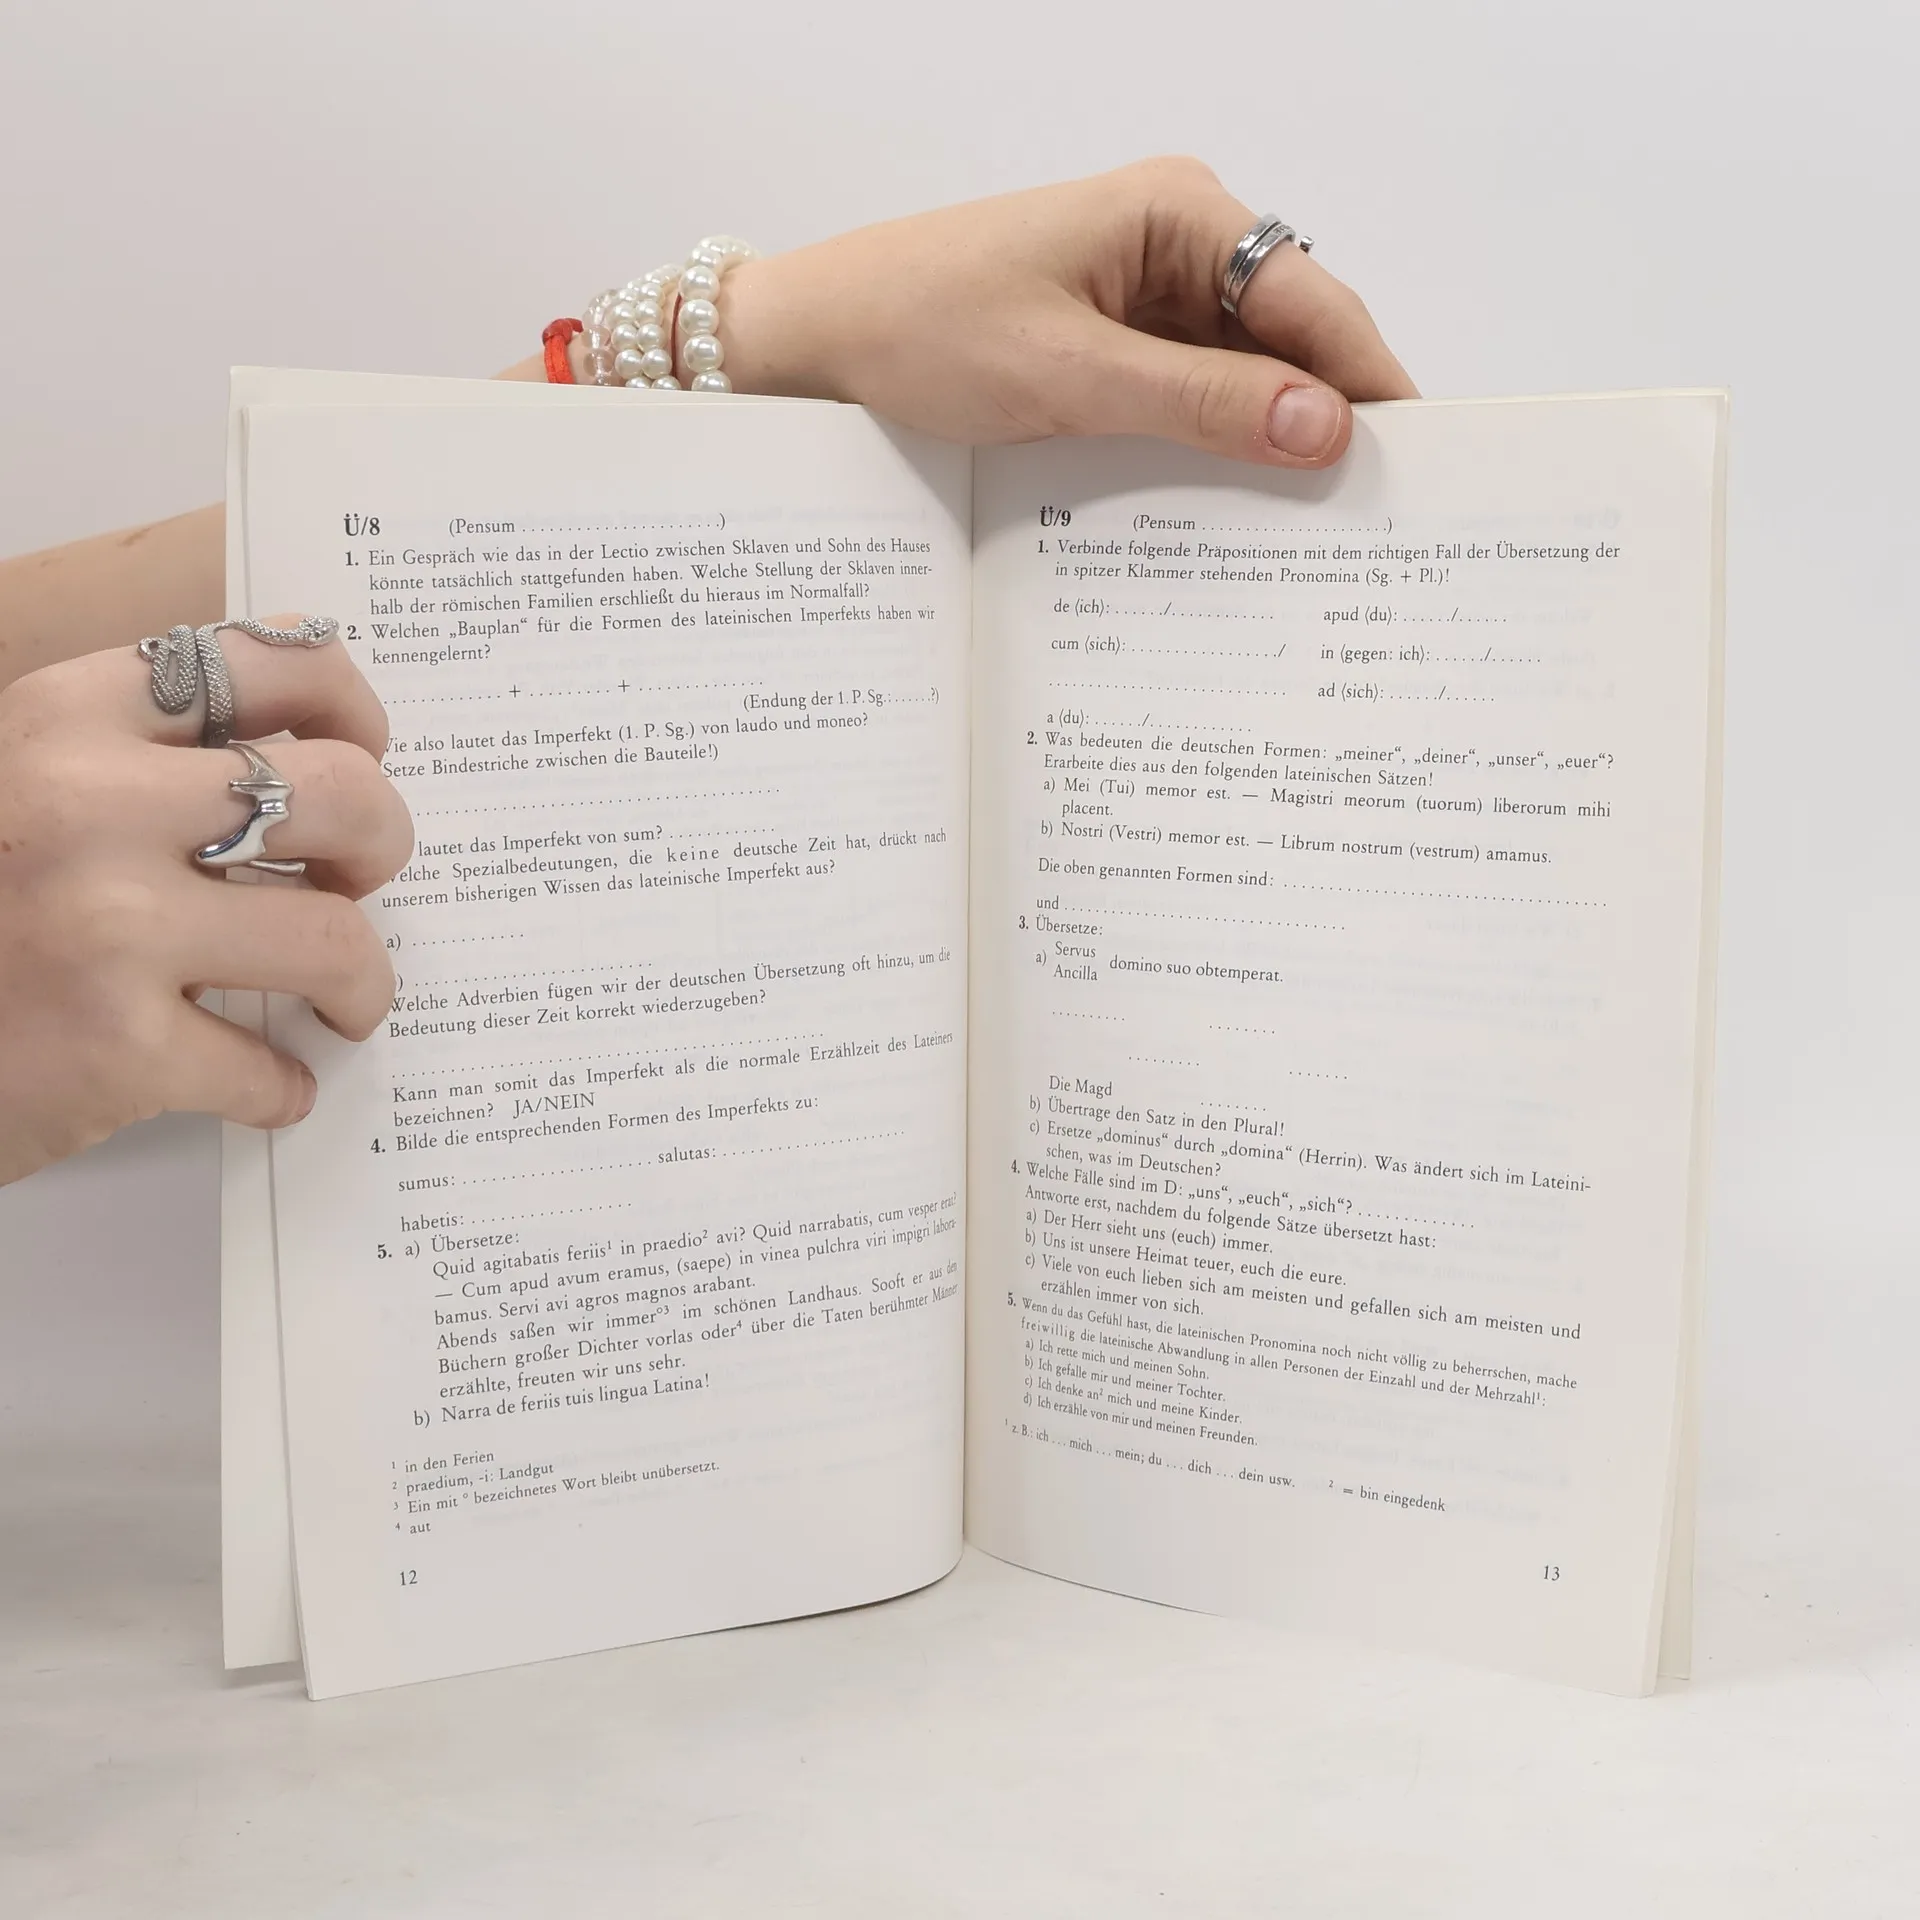 Ü/8 (Pensum ......................)
1. Ein Gespräch wie das in der Lectio zwischen Sklaven und Sohn des Hauses
könnte tatsächlich stattgefunden haben. Welche Stellung der Sklaven inner-
halb der römischen Familien erschließt du hieraus im Normalfall?
2. Welchen „Bauplan“ für die Formen des lateinischen Imperfekts haben wir
kennengelernt?
............. + ......... + ..............
(Endung der 1. P. Sg.:......?)
also lautet das Imperfekt (1. P. Sg.) von laudo und moneo?
Setze Bindestriche zwischen die Bauteile!)
........................................
lautet das Imperfekt von sum? ............
Spezialbedeutungen, die keine deutsche Zeit hat, drückt nach
unserem bisherigen Wissen das lateinische Imperfekt aus?
a) ............
) ..........................
Welche Adverbien fügen wir der deutschen Übersetzung oft hinzu, um die
Bedeutung dieser Zeit korrekt wiederzugeben?
................................................
Kann man somit das Imperfekt als die normale Erzählzeit des Lateiners
bezeichnen? JA/NEIN
4. Bilde die entsprechenden Formen des Imperfekts zu:
sumus: ..................... salutas: ....................
habetis: ..................
5. a) Übersetze:
Quid agitabatis feriis¹ in praedio² avi? Quid narrabatis, cum vesper erat?
— Cum apud avum eramus, (saepe) in vinea pulchra viri impigri labora-
bamus. Servi avi agros magnos arabant.
Abends saßen wir immer°³ im schönen Landhaus. Sooft er aus den
Büchern großer Dichter vorlas oder⁴ über die Taten berühmter Männer
erzählte, freuten wir uns sehr.
b) Narra de feriis tuis lingua Latina!
¹ in den Ferien
² praedium, -i: Landgut
³ Ein mit ° bezeichnetes Wort bleibt unübersetzt.
⁴ aut
12
Ü/9 (Pensum ......................)
1. Verbinde folgende Präpositionen mit dem richtigen Fall der Übersetzung der
in spitzer Klammer stehenden Pronomina (Sg. + Pl.)!
de ⟨ich⟩: ....../............ apud ⟨du⟩: ....../......
cum ⟨sich⟩: ................./ in ⟨gegen: ich⟩: ....../......
.......................... ad ⟨sich⟩: ....../......
a ⟨du⟩: ....../...........
2. Was bedeuten die deutschen Formen: „meiner“, „deiner“, „unser“, „euer“?
Erarbeite dies aus den folgenden lateinischen Sätzen!
a) Mei (Tui) memor est. — Magistri meorum (tuorum) liberorum mihi
placent.
b) Nostri (Vestri) memor est. — Librum nostrum (vestrum) amamus.
Die oben genannten Formen sind: ....................................
und ...............................
3. Übersetze:
a) Servus
Ancilla domino suo obtemperat.
......... ........
......... .......
Die Magd ........
b) Übertrage den Satz in den Plural!
c) Ersetze „dominus“ durch „domina“ (Herrin). Was ändert sich im Lateini-
schen, was im Deutschen?
4. Welche Fälle sind im D: „uns“, „euch“, „sich“? .............
Antworte erst, nachdem du folgende Sätze übersetzt hast:
a) Der Herr sieht uns (euch) immer.
b) Uns ist unsere Heimat teuer, euch die eure.
c) Viele von euch lieben sich am meisten und gefallen sich am meisten und
erzählen immer von sich.
5. Wenn du das Gefühl hast, die lateinischen Pronomina noch nicht völlig zu beherrschen, mache
freiwillig die lateinische Abwandlung in allen Personen der Einzahl und der Mehrzahl¹:
a) Ich rette mich und meinen Sohn.
b) Ich gefalle mir und meiner Tochter.
c) Ich denke an² mich und meine Kinder.
d) Ich erzähle von mir und meinen Freunden.
¹ z. B.: ich ... mich ... mein; du ... dich ... dein usw. ² = bin eingedenk
13